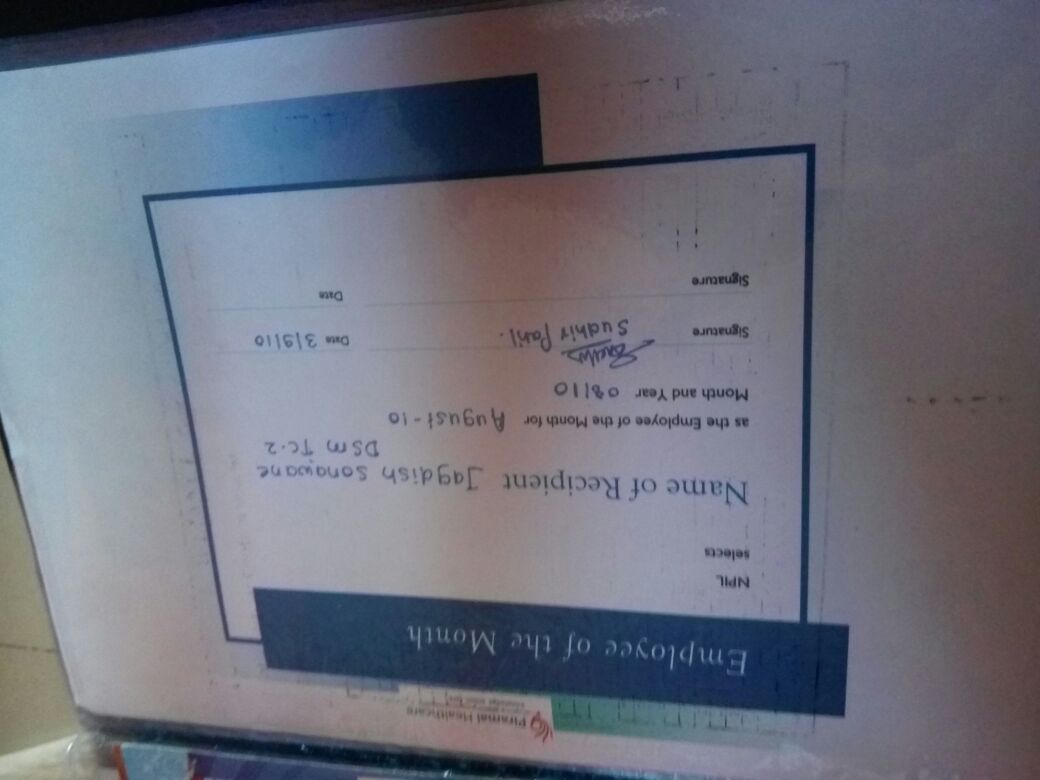 Piramal Healthcare
Employee of the Month
NPIL
selects
Name of Recipient Jagdish Sonawane
DSM TC-2
as the Employee of the Month for August-10
Month and Year 08/10
Signature Sudhir Patil. Date 3/9/10
Signature Date